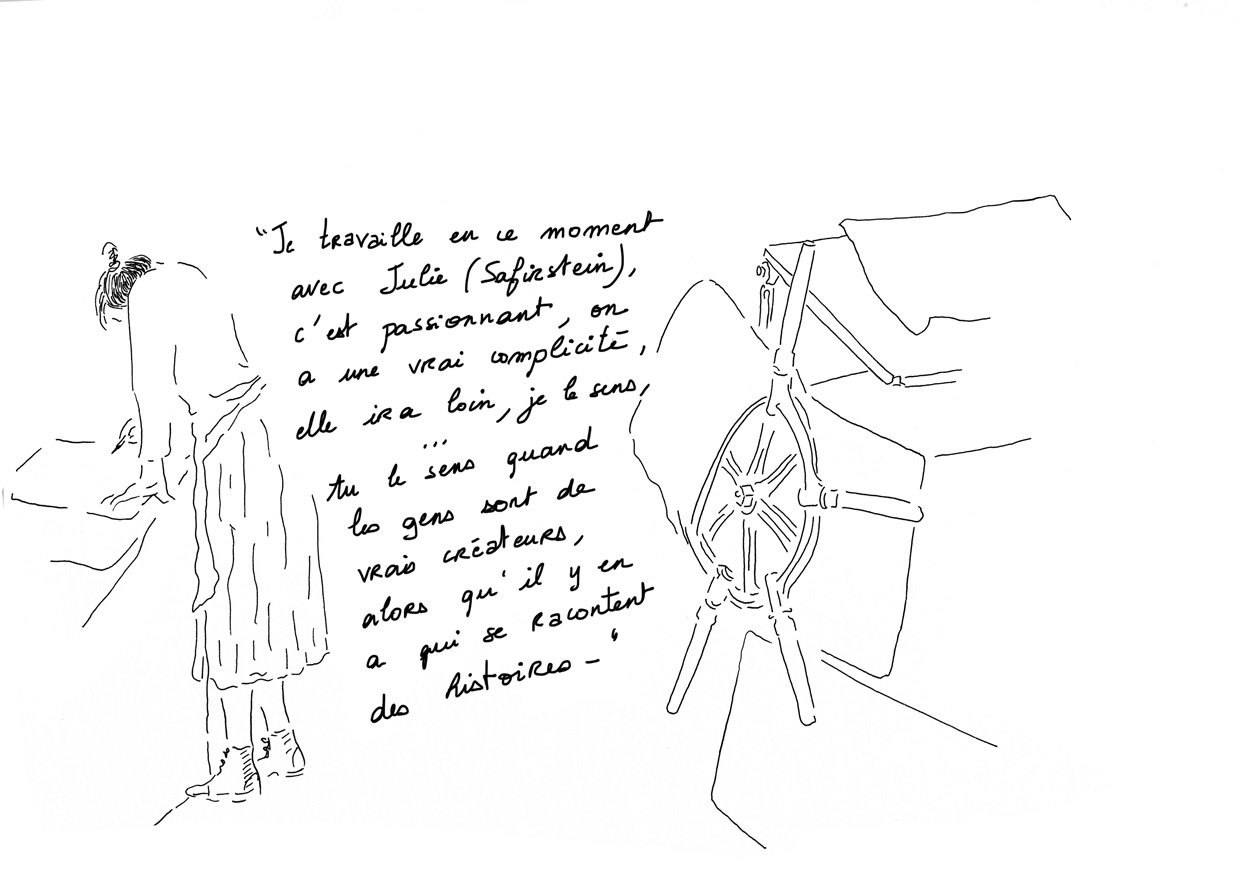 "Je travaille en ce moment
avec Julie (Safirstein),
c'est passionnant, on
a une vrai complicité,
elle ira loin, je le sens,
...
tu le sens quand
les gens sont de
vrais créateurs,
alors qu'il y en
a qui se racontent
des histoires – "